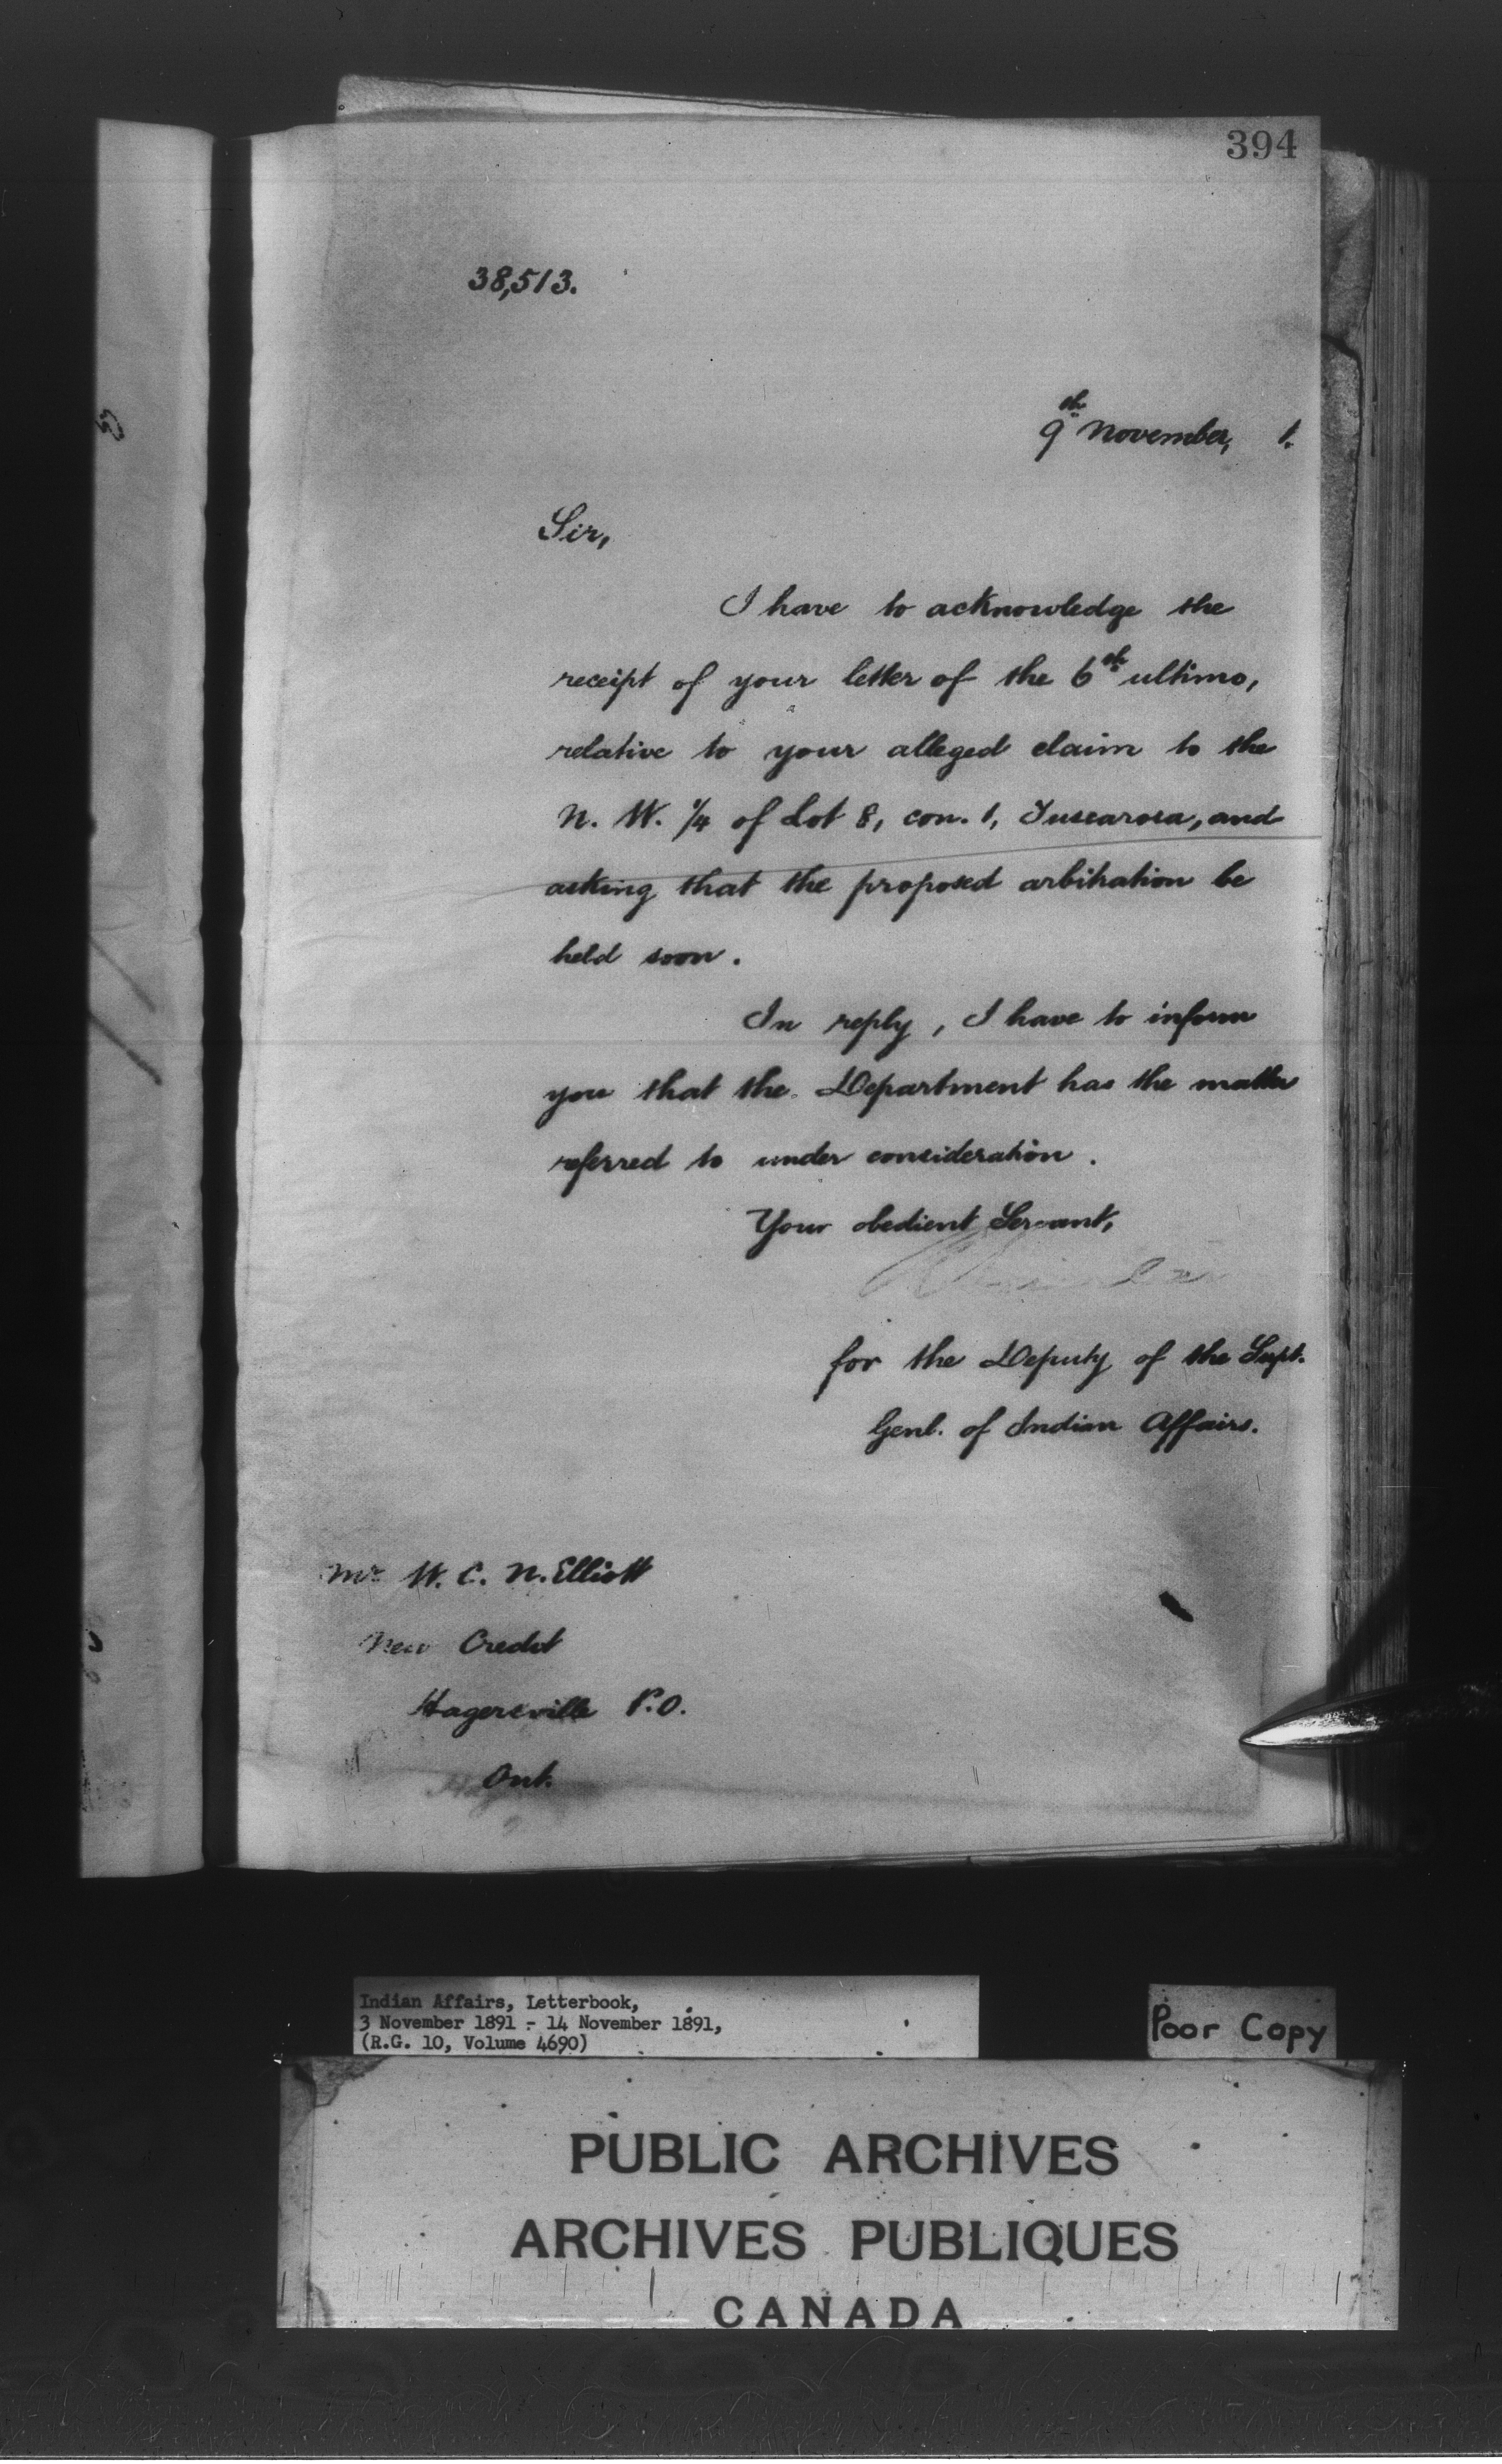 394
38,513.
9th November, 1.
Sir,
I have to acknowledge the
receipt of your letter of the 6th ultimo,
relative to your alleged claim to the
N. W. 1/4 of Lot 8, con. 1, Tuscarora, and
asking that the proposed arbitration be
held soon.
In reply, I have to inform
you that the Department has the matter
referred to under consideration.
Your obedient Servant,
for the Deputy of the Supt.
Genl. of Indian Affairs.
Mr W. C. N. Elliott
New Credit
Hagersville P.O.
Ont.
Indian Affairs, Letterbook,
3 November 1891 - 14 November 1891,
(R.G. 10, Volume 4690)
Poor Copy
PUBLIC ARCHIVES
ARCHIVES PUBLIQUES
CANADA